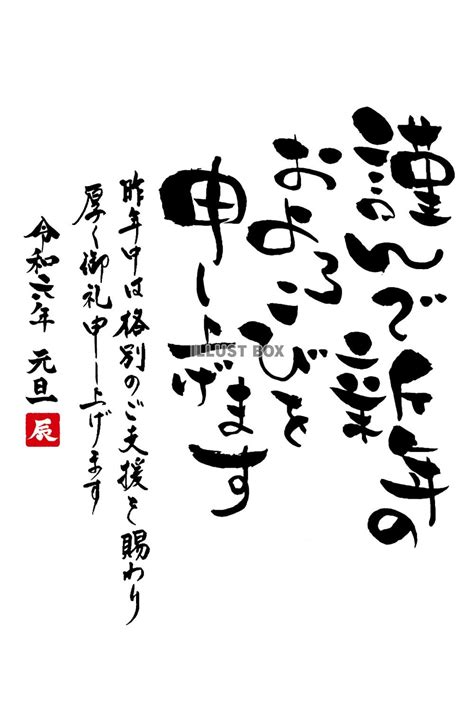 謹んで新年の
およろこびを
申し上げます
昨年中は格別のご支援を賜わり
厚く御礼申し上げます
令和六年 元旦
辰
ILLUST BOX